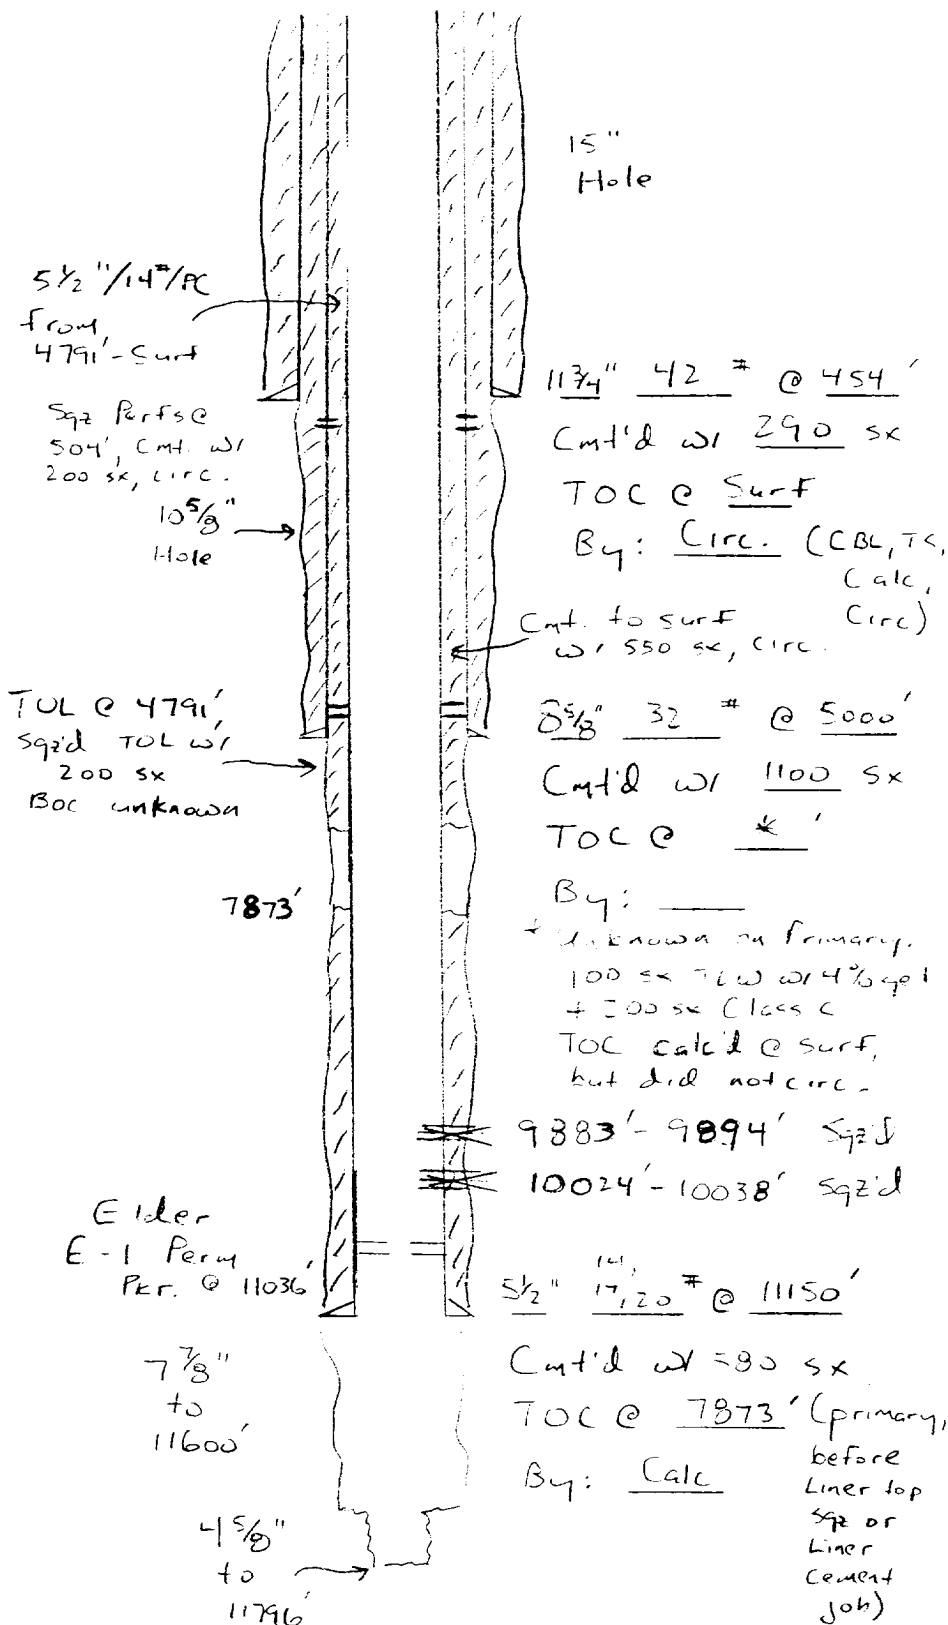 15"
Hole
5 1/2"/14#/PC
from
4791'-Surf
Sqz Perfs @
504', Cmt. w/
200 sx, circ.
10 5/8"
Hole
11 3/4" 42 # @ 454'
Cmt'd w/ 290 sx
TOC @ Surf
By: Circ. (CBL, TS,
Calc,
Circ)
Cmt. to surf
w/ 550 sx, circ.
TOL @ 4791',
Sqz'd TOL w/
200 sx
BOC unknown
8 5/8" 32 # @ 5000'
Cmt'd w/ 1100 sx
TOC @ * '
By:
* Unknown on Primary.
100 sx w/ 4% gel
+ sx Class C
TOC calc'd @ surf,
but did not circ.
7873'
9883'-9894' Sqz'd
10024'-10038' Sqz'd
Elder
E-1 Perm
Pkr. @ 11036'
5 1/2" 14, 17, 20 # @ 11150'
Cmt'd w/ sx
TOC @ 7873' (primary,
before
Liner top
Sqz or
Liner
Cement
job)
By: Calc
7 7/8"
to
11600'
4 5/8"
to
11796'